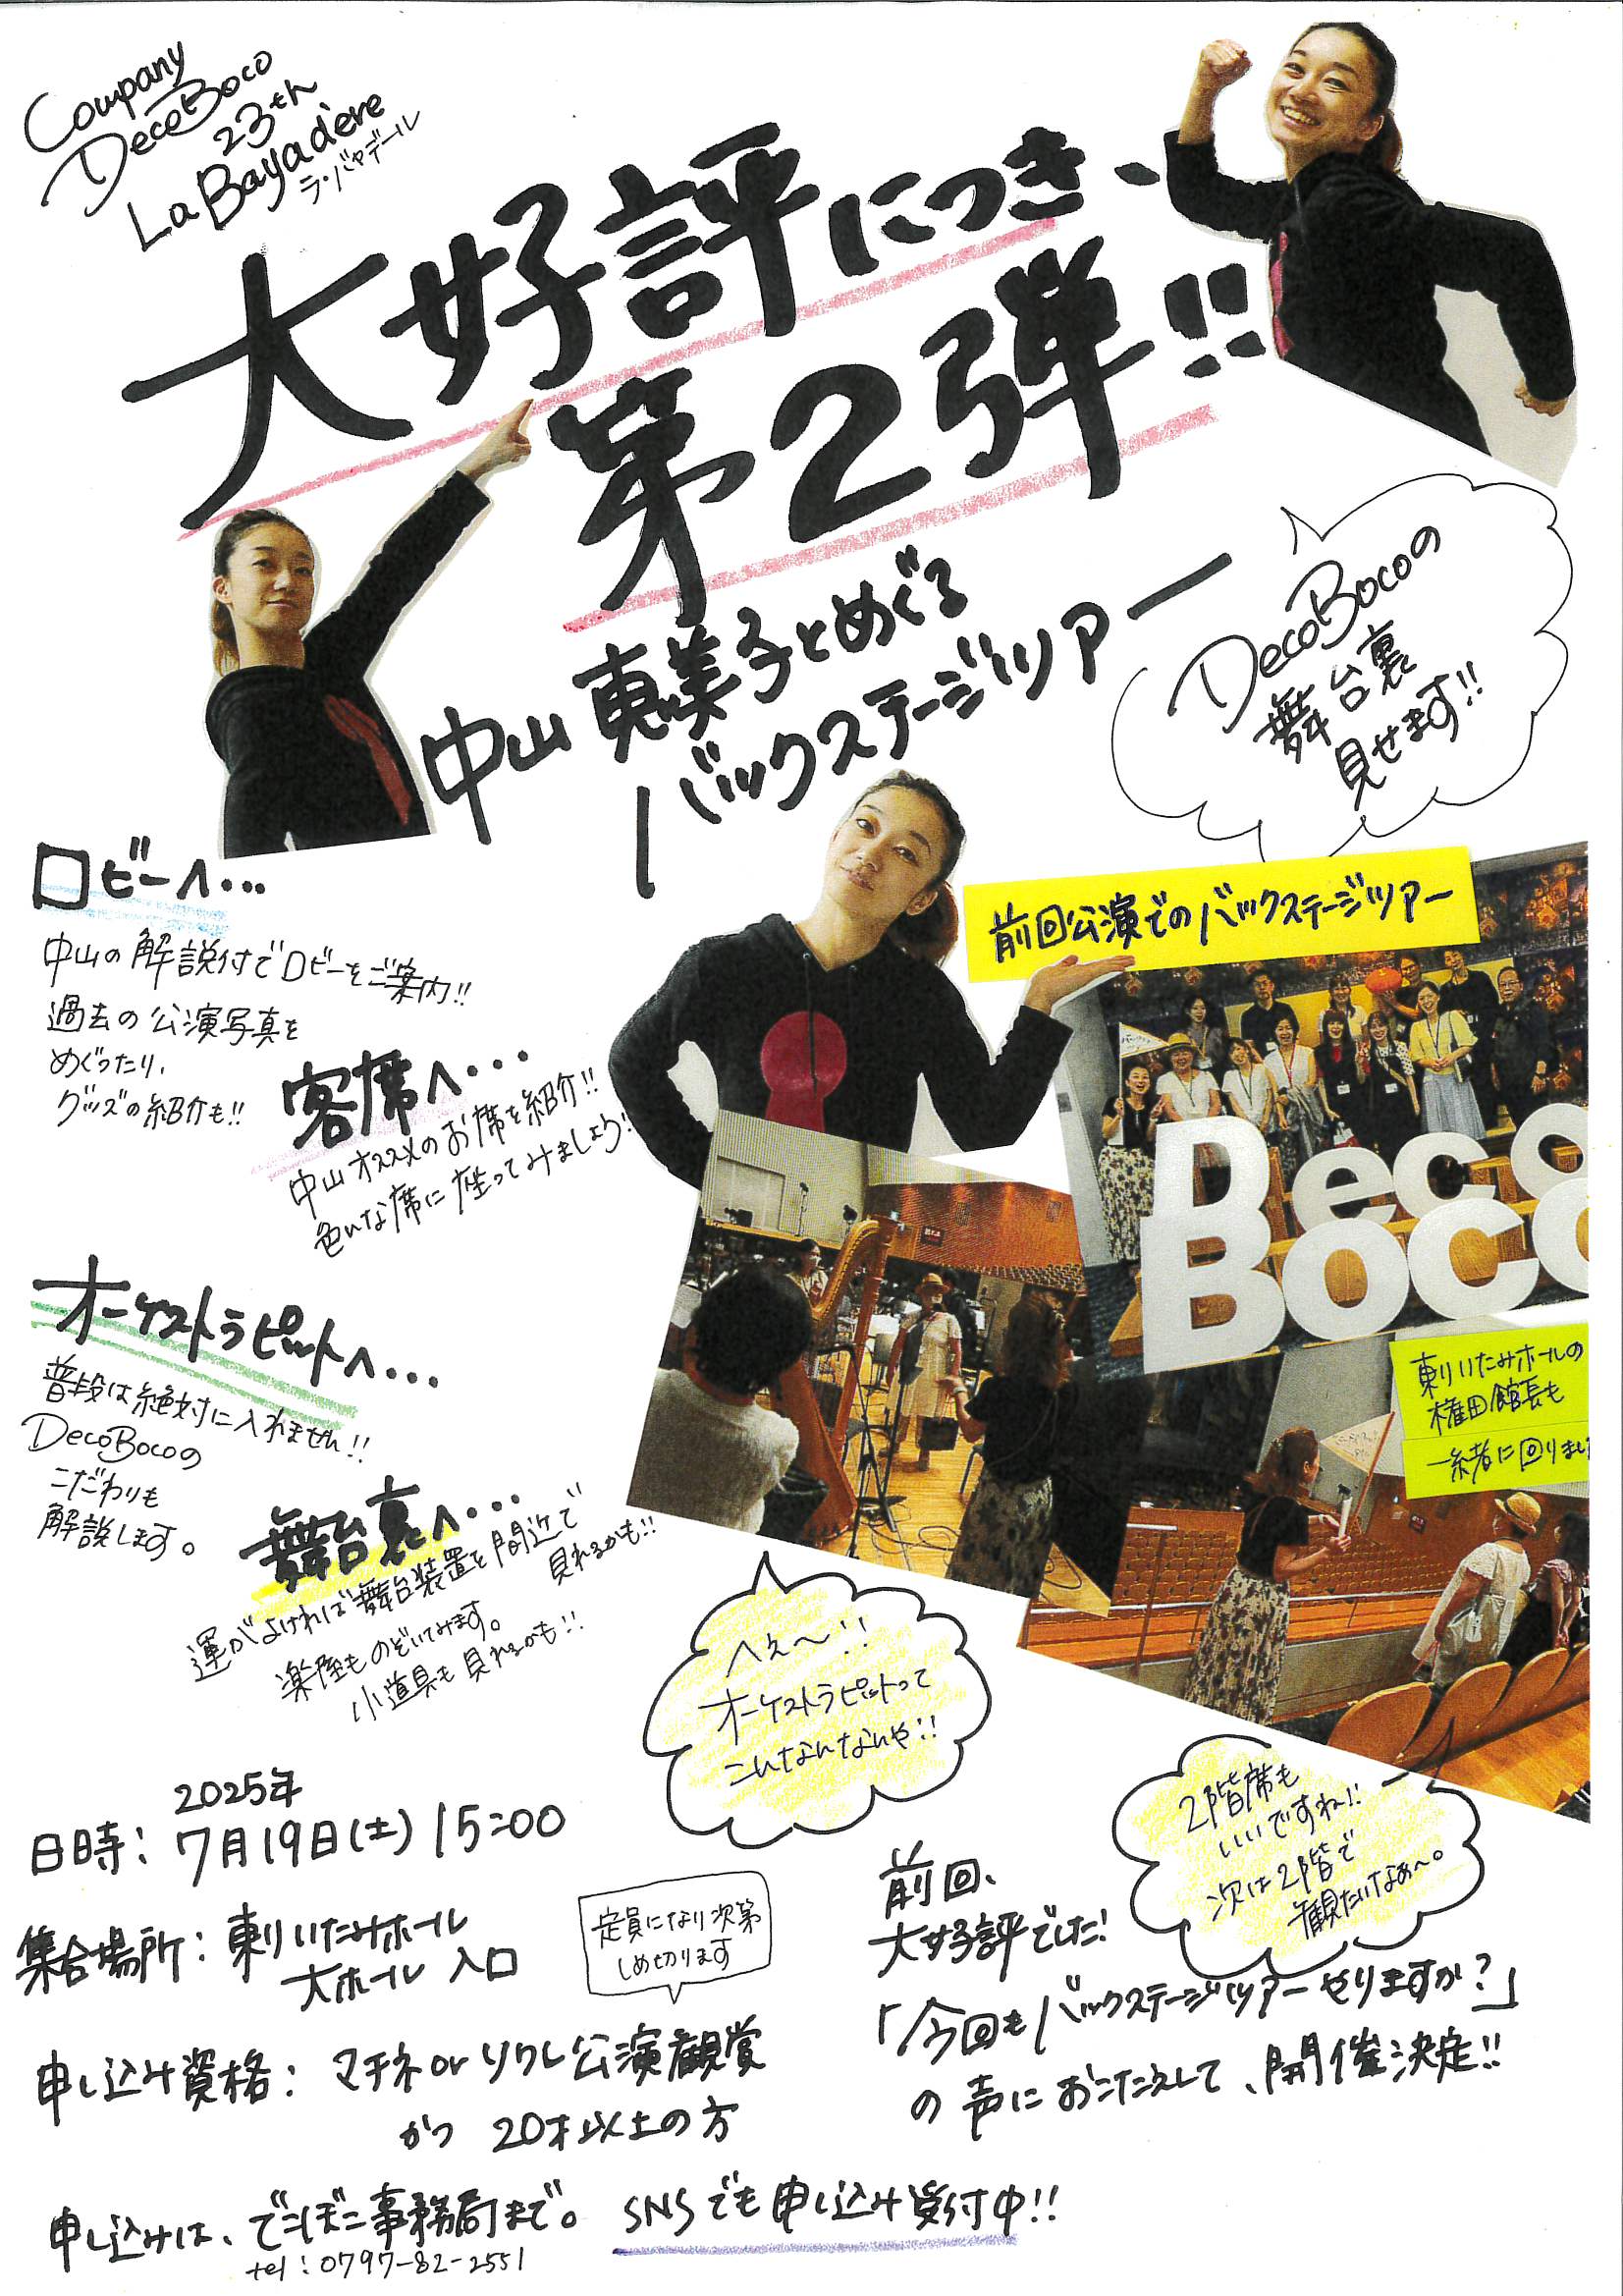 Company
DecoBoco
23th
La Bayadère
ラ・バヤデール
大好評につき、
第2弾!!
中山恵美子とめぐる
バックステージツアー
DecoBocoの
舞台裏
見せます!!
ロビーへ...
中山の解説付でロビーをご案内!!
過去の公演写真を
めぐったり、
グッズの紹介も!!
客席へ...
中山オススメのお席を紹介!!
色んな席に座ってみましょう!
オーケストラピットへ...
普段は絶対に入れません!!
DecoBocoの
こだわりも
解説します。
舞台裏へ...
運がよければ舞台装置を間近で
見れるかも!!
楽屋ものぞいてみます。
小道具も見れるかも!!
前回公演でのバックステージツアー
Deco
Boco
東リいたみホールの
権田館長も
一緒に回りまし
へぇ〜!!
オーケストラピットって
こんなんなんや!!
2階席も
いいですね!!
次は2階で
観たいなぁ〜。
2025年
日時:7月19日(土)15:00
集合場所:東リいたみホール
大ホール 入口
定員になり次第
しめ切ります
申し込み資格:マチネorソワレ公演観賞
かつ 20才以上の方
申し込みは、でこぼこ事務局まで。
tel:0797-82-2551
SNSでも申し込み受付中!!
前回、
大好評でした!
「今回もバックステージツアーやりますか?」
の声におこたえして、開催決定!!